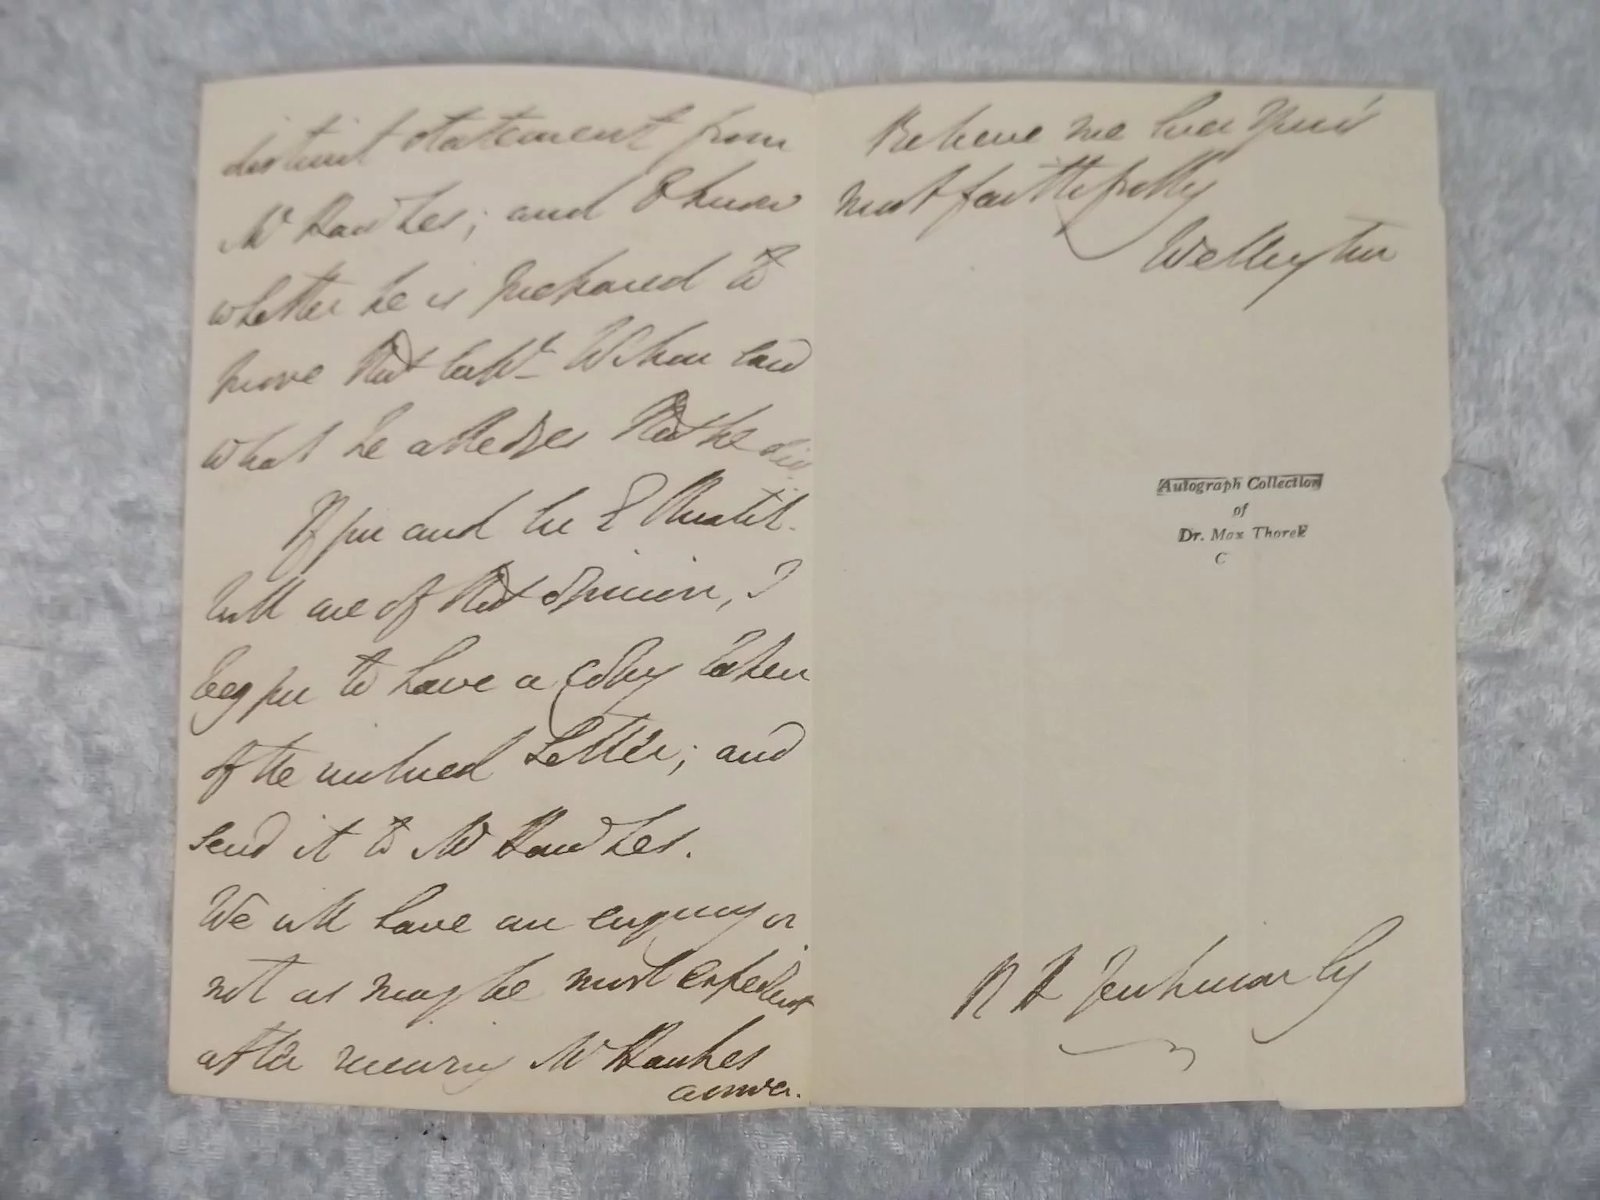 distinct statement from
Mr Hawkes; and to know
whether he is prepared to
prove that Captn
what he alledges that he did.
If you and
will are of that opinion, I
beg you to have a copy taken
of the inclosed Letter; and
send it to Mr Hawkes.
We will have an enquiry or
not as may be most expedient
after receiving Mr Hawkes
answer.
Believe me Ever Yours
most faithfully
Wellington
Autograph Collection
of
Dr. Max Thorek
C
R H Jenkinson Esq